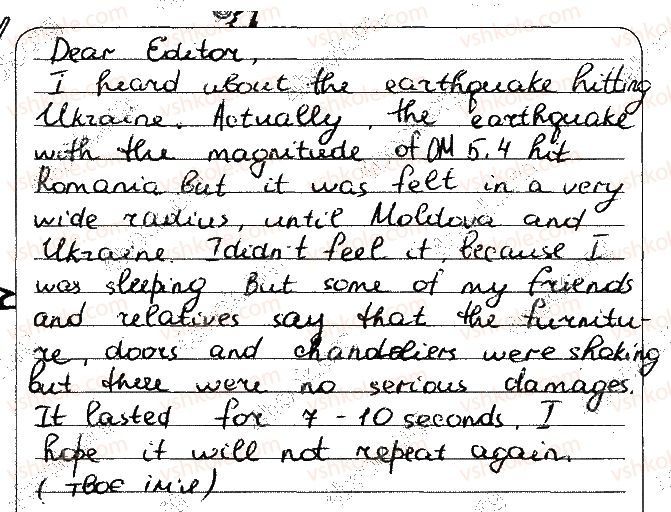 Dear Editor,
I heard about the earthquake hitting
Ukraine. Actually, the earthquake
with the magnitude of OM 5.4 hit
Romania. But it was felt in a very
wide radius, until Moldova and
Ukraine. I didn't feel it, because I
was sleeping. But some of my friends
and relatives say that the furnitu-
re, doors and chandeliers were shaking
but there were no serious damages.
It lasted for 7-10 seconds. I
hope it will not repeat again.
(твоє ім'я)